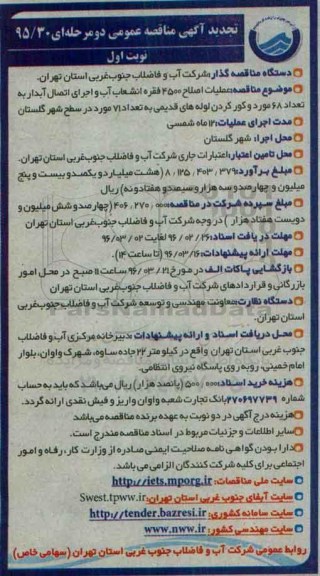 تجدید آگهی مناقصه عمومی دو مرحله‌ای ۹۵/۳۰
نوبت اول
دستگاه مناقصه گذار: شرکت آب و فاضلاب جنوب‌غربی استان تهران.
موضوع مناقصه: عملیات اصلاح ۲۵۰۰ فقره انشعاب آب و اجرای اتصال آبدار به
تعداد ۶۸ مورد و کور کردن لوله های قدیمی به تعداد ۷۱ مورد در سطح شهر گلستان
مدت اجرای عملیات: ۱۲ ماه شمسی
محل اجرا: شهر گلستان
محل تامین اعتبار: اعتبارات جاری شرکت آب و فاضلاب جنوب‌غربی استان تهران.
مبلغ برآورد: ۸،۱۲۵،۴۰۳،۳۷۹ (هشت میلیارد و یکصد و بیست و پنج
میلیون و چهارصد و سه هزار و سیصد و هفتاد و نه) ریال
مبلغ سپرده شرکت در مناقصه: ۴۰۶،۲۷۰،۰۰۰ (چهارصد و شش میلیون و
دویست هفتاد هزار) در وجه شرکت آب و فاضلاب جنوب غربی استان تهران
مهلت دریافت اسناد: ۹۶/۰۲/۲۶ لغایت ۹۶/۰۳/۰۲
مهلت ارائه پیشنهادات: ۹۶/۰۳/۱۶ (تا ساعت ۱۴).
بازگشایی پاکات الف در مورخ ۹۶/۰۳/۲۱ ساعت ۱۱ صبح در محل امور
بازرگانی و قراردادهای شرکت آب و فاضلاب جنوب‌غربی استان تهران
دستگاه نظارت: معاونت مهندسی و توسعه شرکت آب و فاضلاب جنوب‌غربی
استان تهران.
محل دریافت اسناد و ارائه پیشنهادات: دبیرخانه مرکزی آب و فاضلاب
جنوب غربی استان تهران واقع در کیلومتر ۲۲ جاده ساوه، شهرک واوان، بلوار
امام خمینی، روبه روی پاسگاه نیروی انتظامی.
هزینه خرید اسناد: ۵۰۰،۰۰۰ (پانصد هزار) ریال می‌باشد که باید به حساب
شماره ۲۷۰۶۹۷۷۳۹ بانک تجارت شعبه واوان واریز و فیش نقدی ارائه گردد.
هزینه درج آگهی در دو نوبت به عهده برنده مناقصه می‌باشد
سایر اطلاعات و جزئیات مربوط در اسناد مناقصه مندرج است.
دارا بودن گواهی نامه صلاحیت ایمنی صادره از وزارت کار، رفاه و امور
اجتماعی برای کلیه شرکت کنندگان الزامی می باشد.
سایت ملی مناقصات: http://iets.mporg.ir
سایت آبفای جنوب غربی استان تهران: Swest.tpww.ir
سایت سامانه کشوری: http://tender.bazresi.ir
سایت مهندسی کشور: www.nww.ir
روابط عمومی شرکت آب و فاضلاب جنوب غربی استان تهران (سهامی خاص)